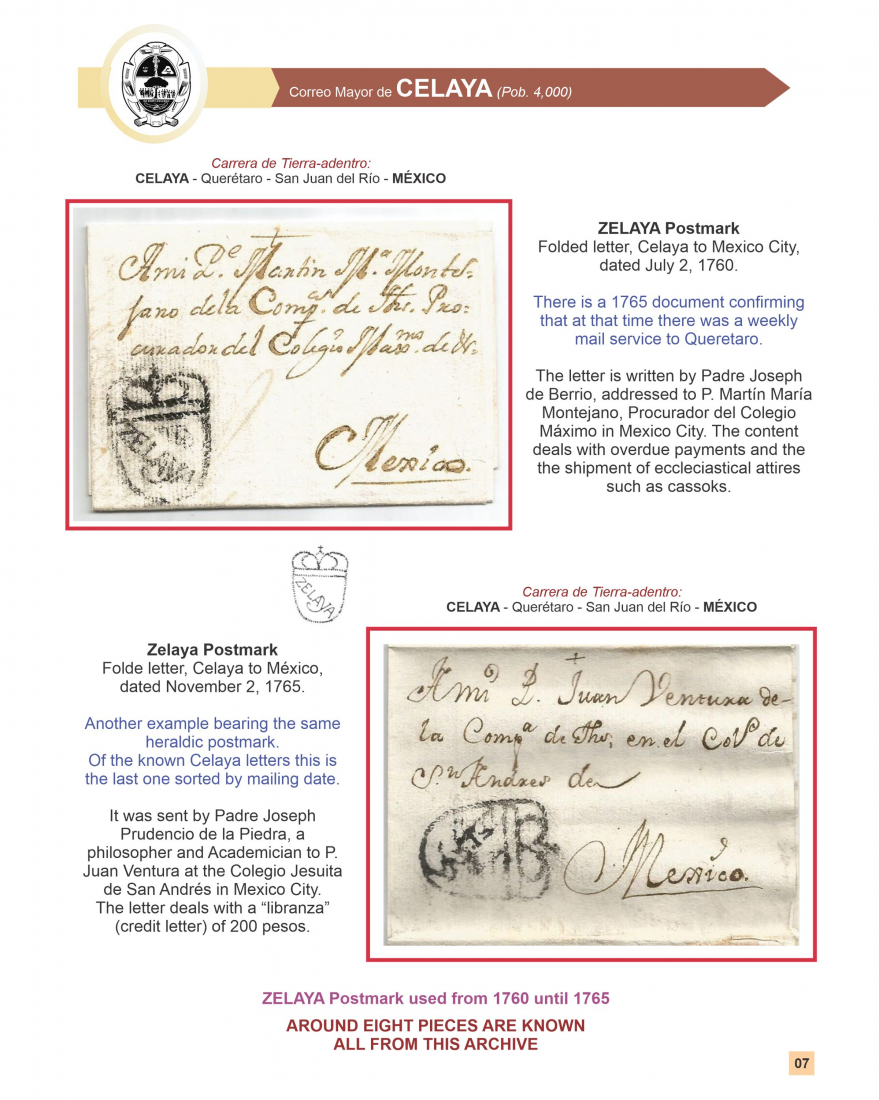 Correo Mayor de CELAYA (Pob. 4,000)
Carrera de Tierra-adentro:
CELAYA - Querétaro - San Juan del Río - MÉXICO
Ami Pe. Martin Ma. Monte-
jano dela Compa. de Jhs. Pro-
curador del Colegio Maxmo. de Sn.
Mexico.
ZELAYA
ZELAYA Postmark
Folded letter, Celaya to Mexico City,
dated July 2, 1760.
There is a 1765 document confirming
that at that time there was a weekly
mail service to Queretaro.
The letter is written by Padre Joseph
de Berrio, addressed to P. Martín María
Montejano, Procurador del Colegio
Máximo in Mexico City. The content
deals with overdue payments and the
the shipment of eccleciastical attires
such as cassoks.
ZELAYA
Zelaya Postmark
Folde letter, Celaya to México,
dated November 2, 1765.
Another example bearing the same
heraldic postmark.
Of the known Celaya letters this is
the last one sorted by mailing date.
It was sent by Padre Joseph
Prudencio de la Piedra, a
philosopher and Academician to P.
Juan Ventura at the Colegio Jesuita
de San Andrés in Mexico City.
The letter deals with a “libranza”
(credit letter) of 200 pesos.
Carrera de Tierra-adentro:
CELAYA - Querétaro - San Juan del Río - MÉXICO
Ami P. Juan Ventura de
la Compa de Jhs, en el Colo de
Sn Andres de
Mexico.
ZELAYA Postmark used from 1760 until 1765
AROUND EIGHT PIECES ARE KNOWN
ALL FROM THIS ARCHIVE
07